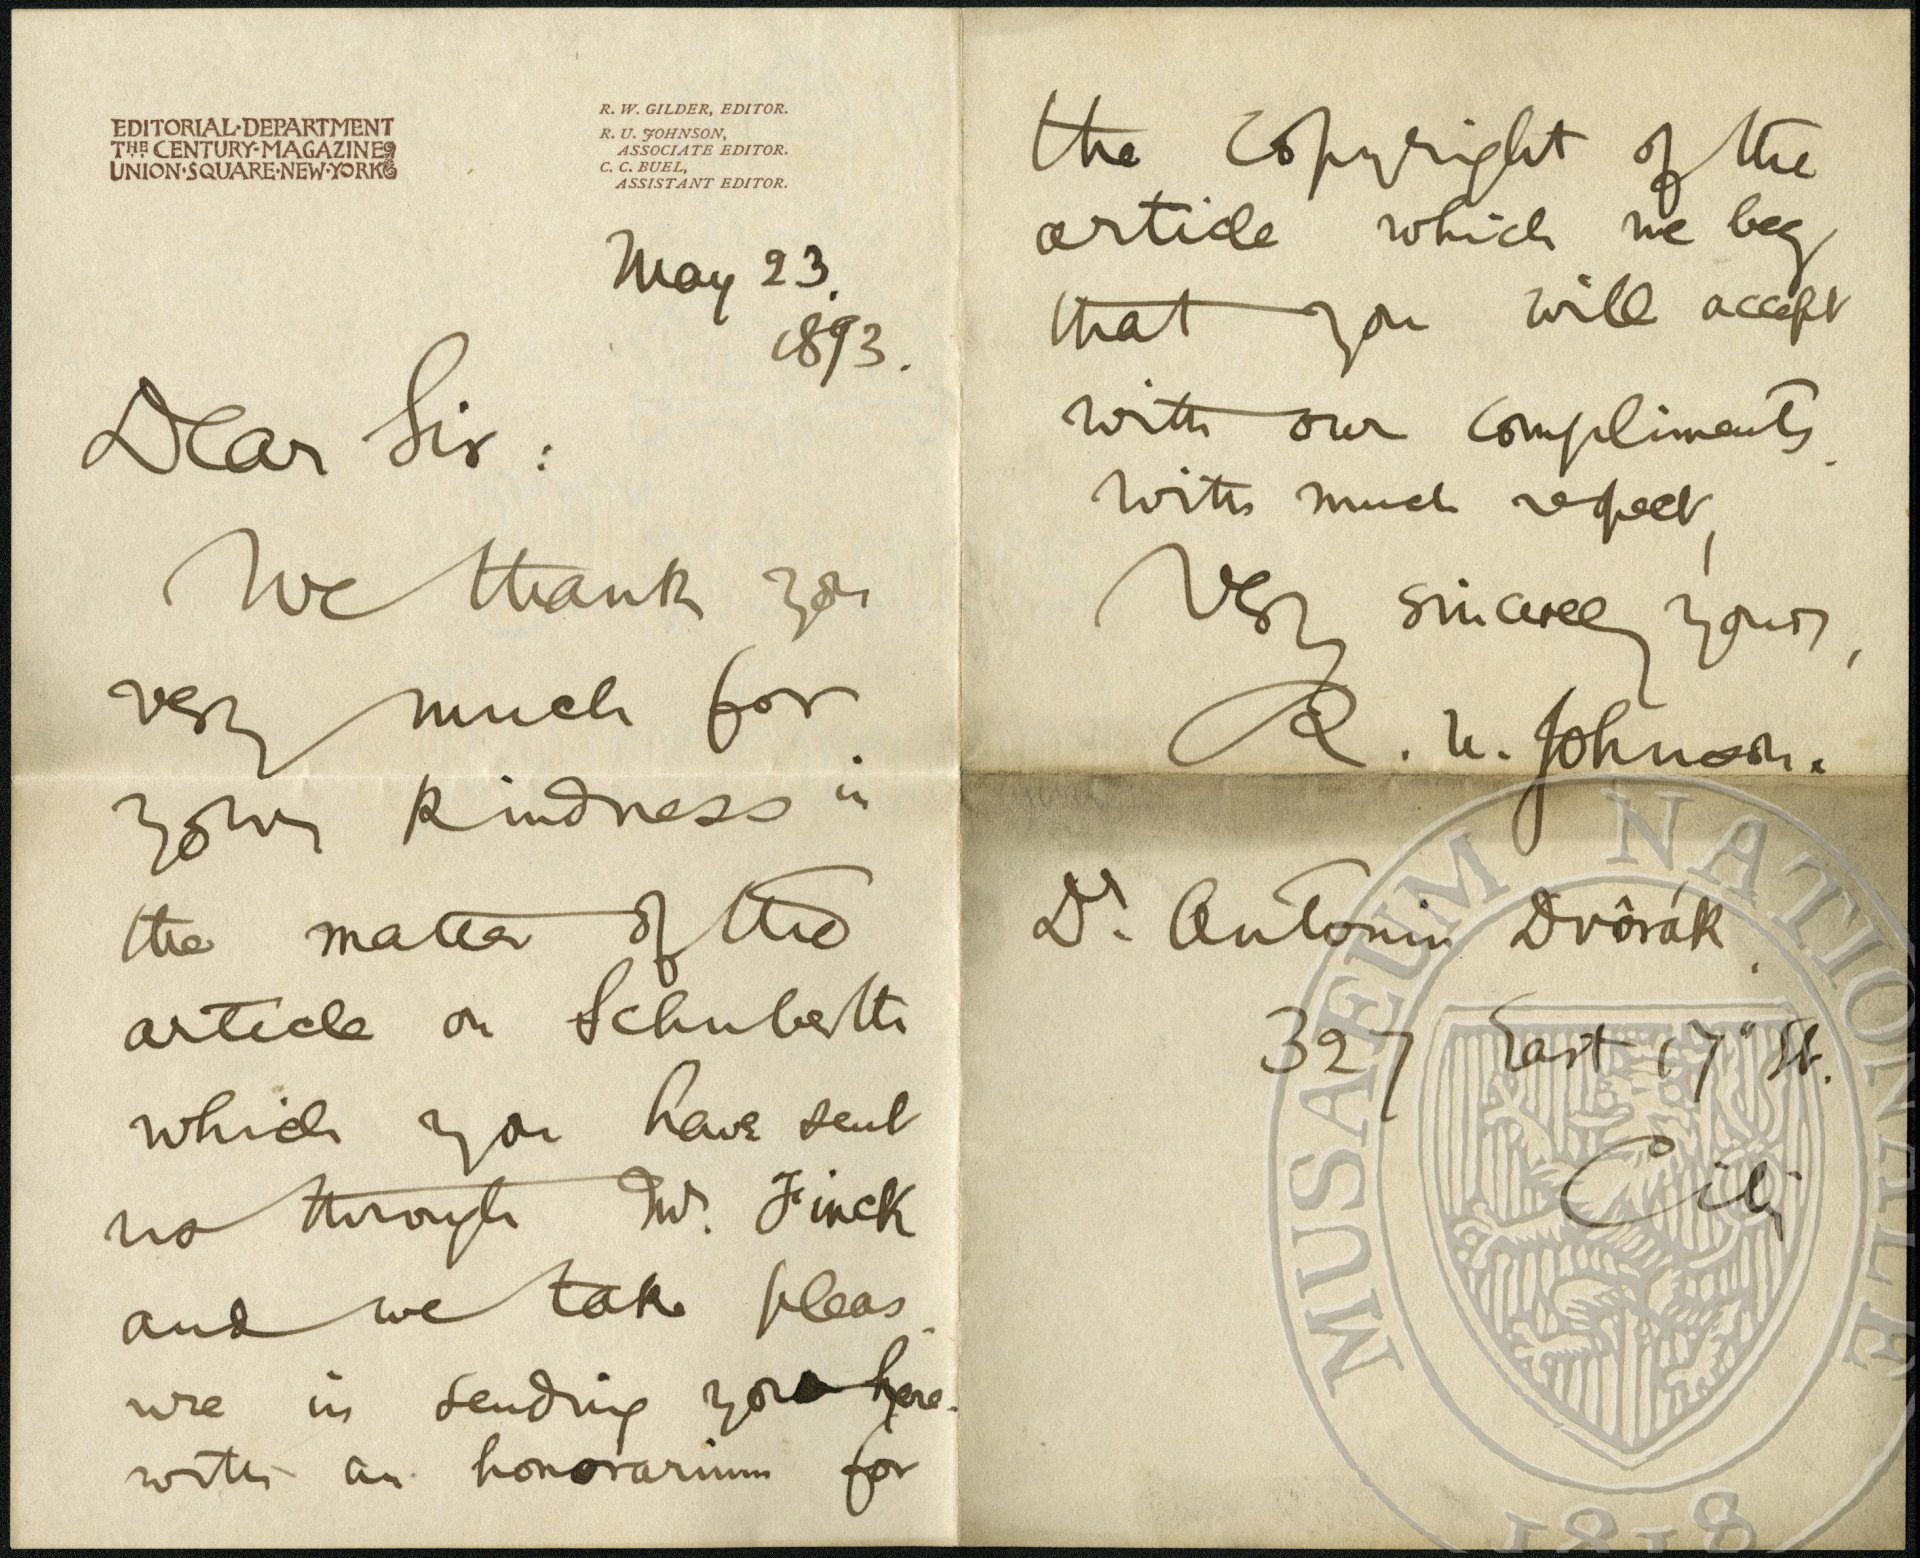 EDITORIAL·DEPARTMENT
THE CENTURY·MAGAZINE
UNION·SQUARE·NEW·YORK
R. W. GILDER, EDITOR.
R. U. JOHNSON,
ASSOCIATE EDITOR.
C. C. BUEL,
ASSISTANT EDITOR.
May 23.
1893.
Dear Sir:
We thank you
very much for
your kindness in
the matter of the
article on Schubert
which you have sent
us through Mr. Finck
and we take pleas-
ure in sending you here-
with an honorarium for
the copyright of the
article which we beg
that you will accept
with our compliments.
With much respect,
Very sincerely yours,
R. U. Johnson.
Dr. Antonin Dvôrák.
327 East 17" St.
City
MUSAEUM NATIONALE
1818